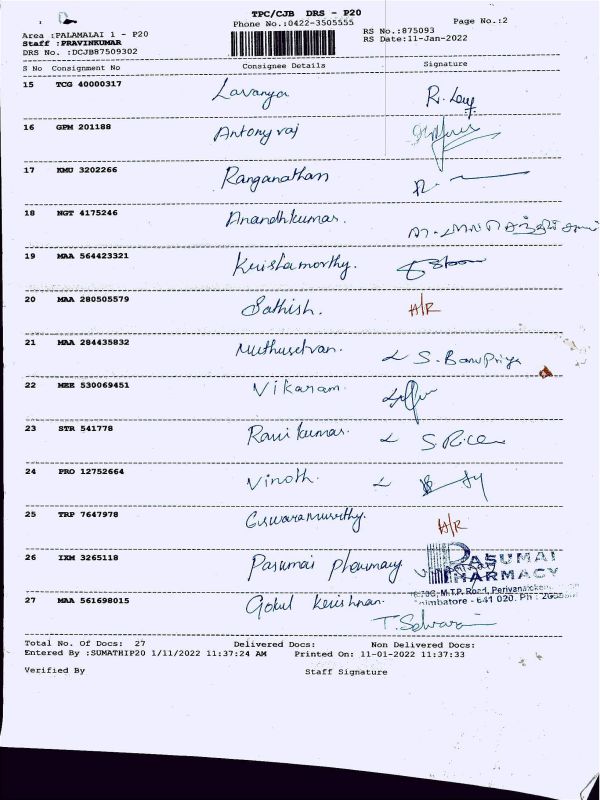 TPC/CJB DRS - P20
Phone No.:0422-3505555 Page No.:2
Area :PALAMALAI 1 - P20 RS No.:875093
Staff :PRAVINKUMAR RS Date:11-Jan-2022
DRS No. :DCJB87509302
S No Consignment No Consignee Details Signature
15 TCG 40000317 Lavanya
16 GPM 201188 Antonyraj
17 KMU 3202266 Ranganathan
18 NGT 4175246 Anandhkumar.
19 MAA 564423321 Krishamorthy.
20 MAA 280505579 Sathish. H/R
21 MAA 284435832 Muthuselvan. S. Banupriya
22 MEE 530069451 Vikaram
23 STR 541778 Ravi kumar.
24 PRO 12752664 Vinoth.
25 TRP 7647978 H/R
26 IXM 3265118 Pasumai PASUMAI
PHARMACY
M.T.P. Road,
641 020. Ph :
27 MAA 561698015 Gokul T. Selvara
Total No. Of Docs: 27 Delivered Docs: Non Delivered Docs:
Entered By :SUMATHIP20 1/11/2022 11:37:24 AM Printed On: 11-01-2022 11:37:33
Verified By Staff Signature